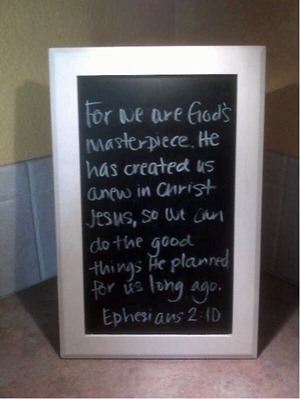 For we are God's
masterpiece. He
has created us
anew in Christ
Jesus, so we can
do the good
things He planned
for us long ago.
Ephesians 2:10